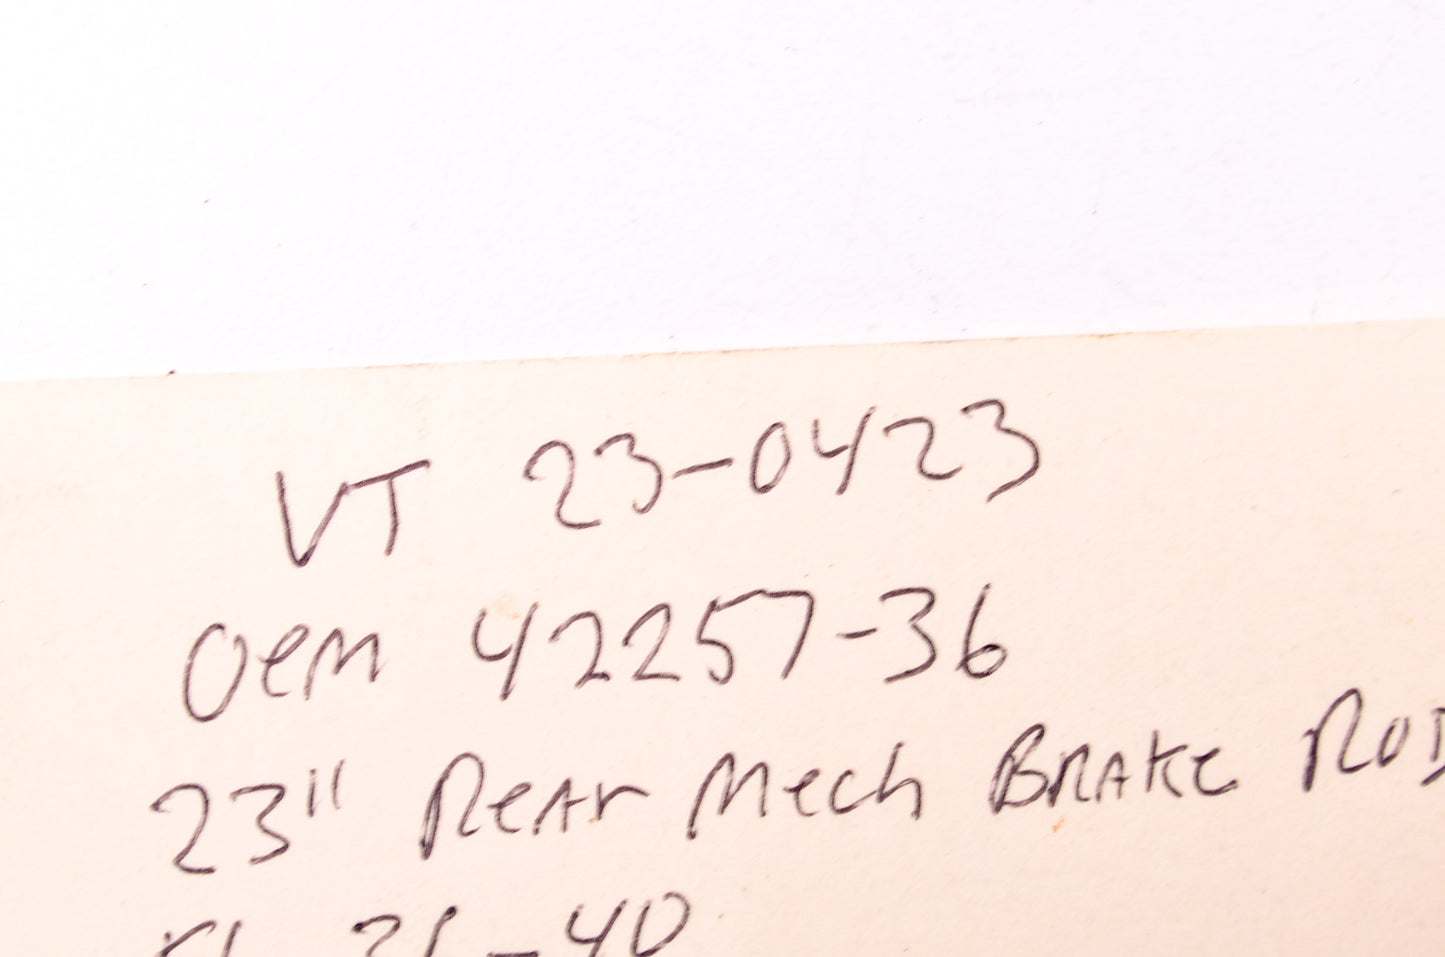 VT 23-0423
OEM 42257-36
23" Rear Mech Brake Rod
36-40